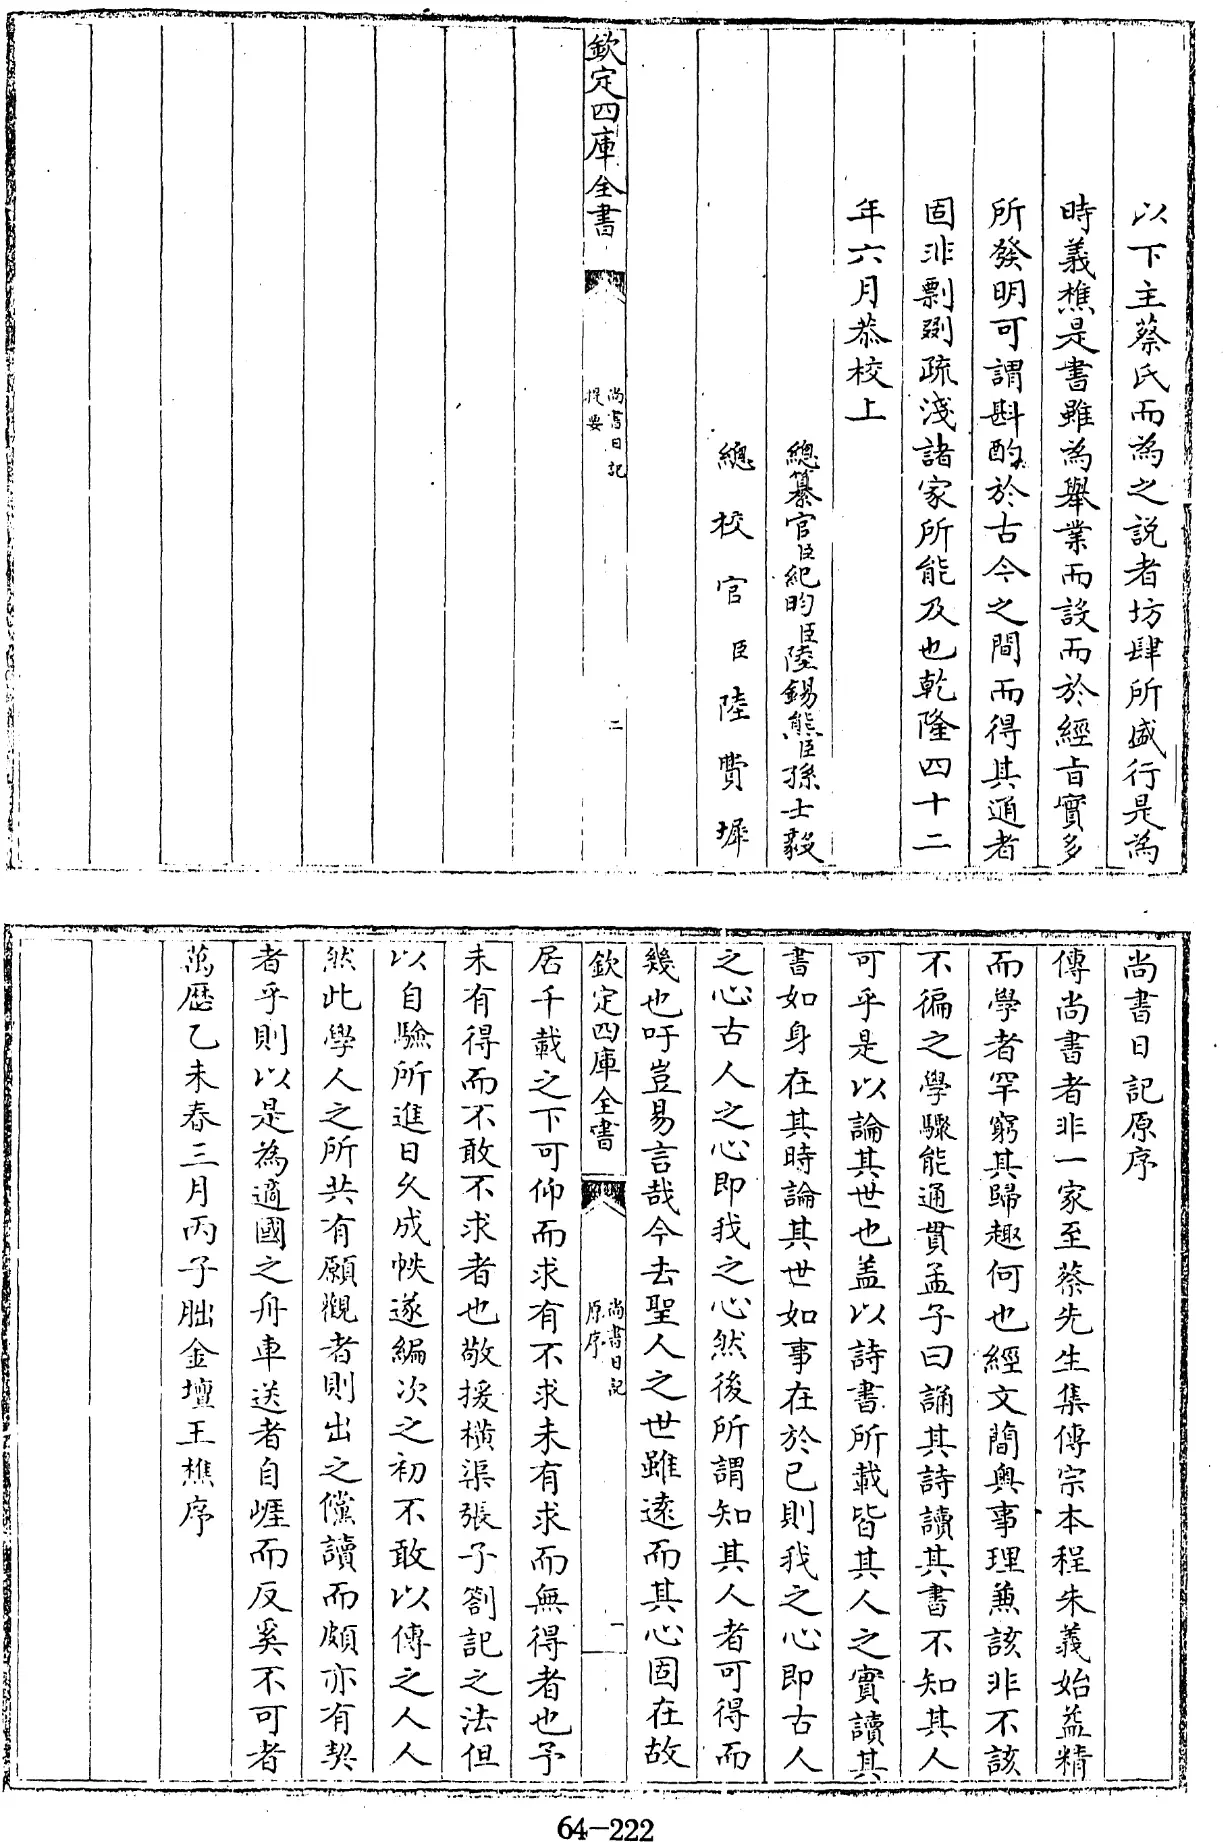 以下主蔡氏而為之說者坊肆所盛行是為
時義樵是書雖為舉業而設而於經旨實多
所發明可謂斟酌於古今之間而得其通者
固非剽剟疏淺諸家所能及也乾隆四十二
年六月恭校上
總纂官臣紀昀臣陸錫熊臣孫士毅
總校官臣陸費墀
欽定四庫全書
尚書日記
提要
二
尚書日記原序
傳尚書者非一家至蔡先生集傳宗本程朱義始益精
而學者罕窮其歸趣何也經文簡奥事理兼該非不該
不徧之學驟能通貫孟子曰誦其詩讀其書不知其人
可乎是以論其世也蓋以詩書所載皆其人之實讀其
書如身在其時論其世如事在於己則我之心即古人
之心古人之心即我之心然後所謂知其人者可得而
幾也吁豈易言哉今去聖人之世雖遠而其心固在故
欽定四庫全書
尚書日記
原序
一
居千載之下可仰而求有不求未有求而無得者也予
未有得而不敢不求者也敬援横渠張子劄記之法但
以自驗所進日久成帙遂編次之初不敢以傳之人人
然此學人之所共有願觀者則出之儻讀而頗亦有契
者乎則以是為適國之舟車送者自崖而反奚不可者
萬歷乙未春三月丙子朏金壇王樵序
64-222